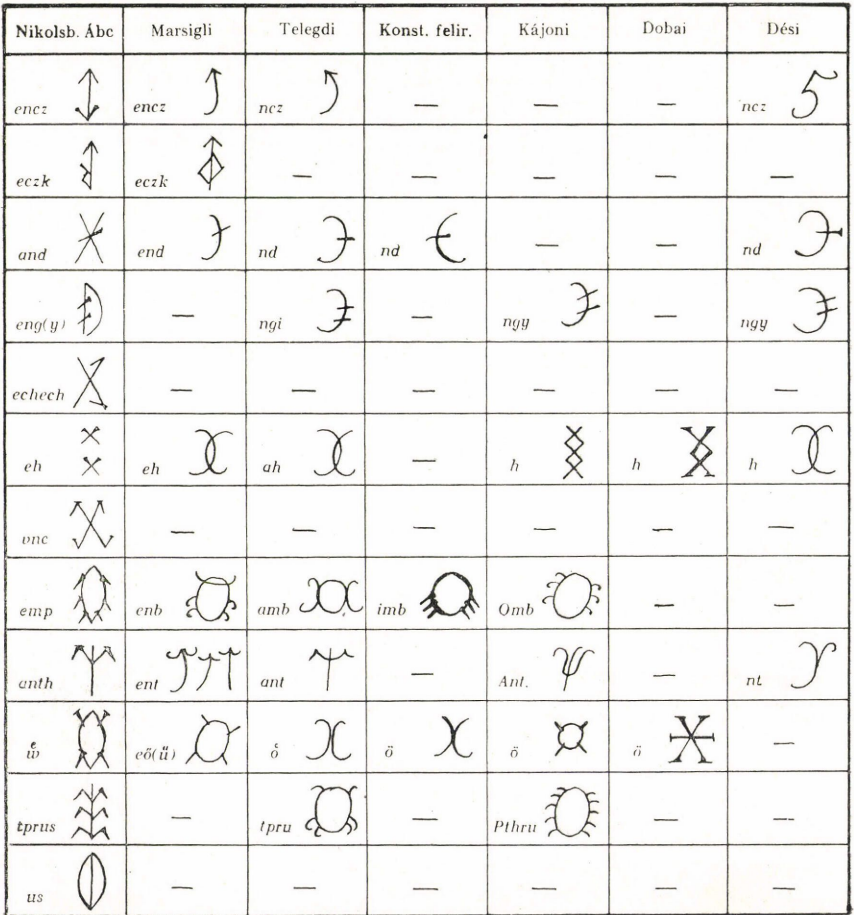 Nikolsb. Ábc Marsigli Telegdi Konst. felir. Kájoni Dobai Dési
encz encz ncz — — — ncz
eczk eczk — — — — —
and end nd nd — — nd
eng(y) — ngi — ngy — ngy
echech — — — — — —
eh eh ah — h h h
vnc — — — — — —
emp enb amb imb Omb — —
anth ent ant — Ant. — nt
eő(ű) ö ö ö —
tprus — tpru — Pthru — —
us — — — — — —